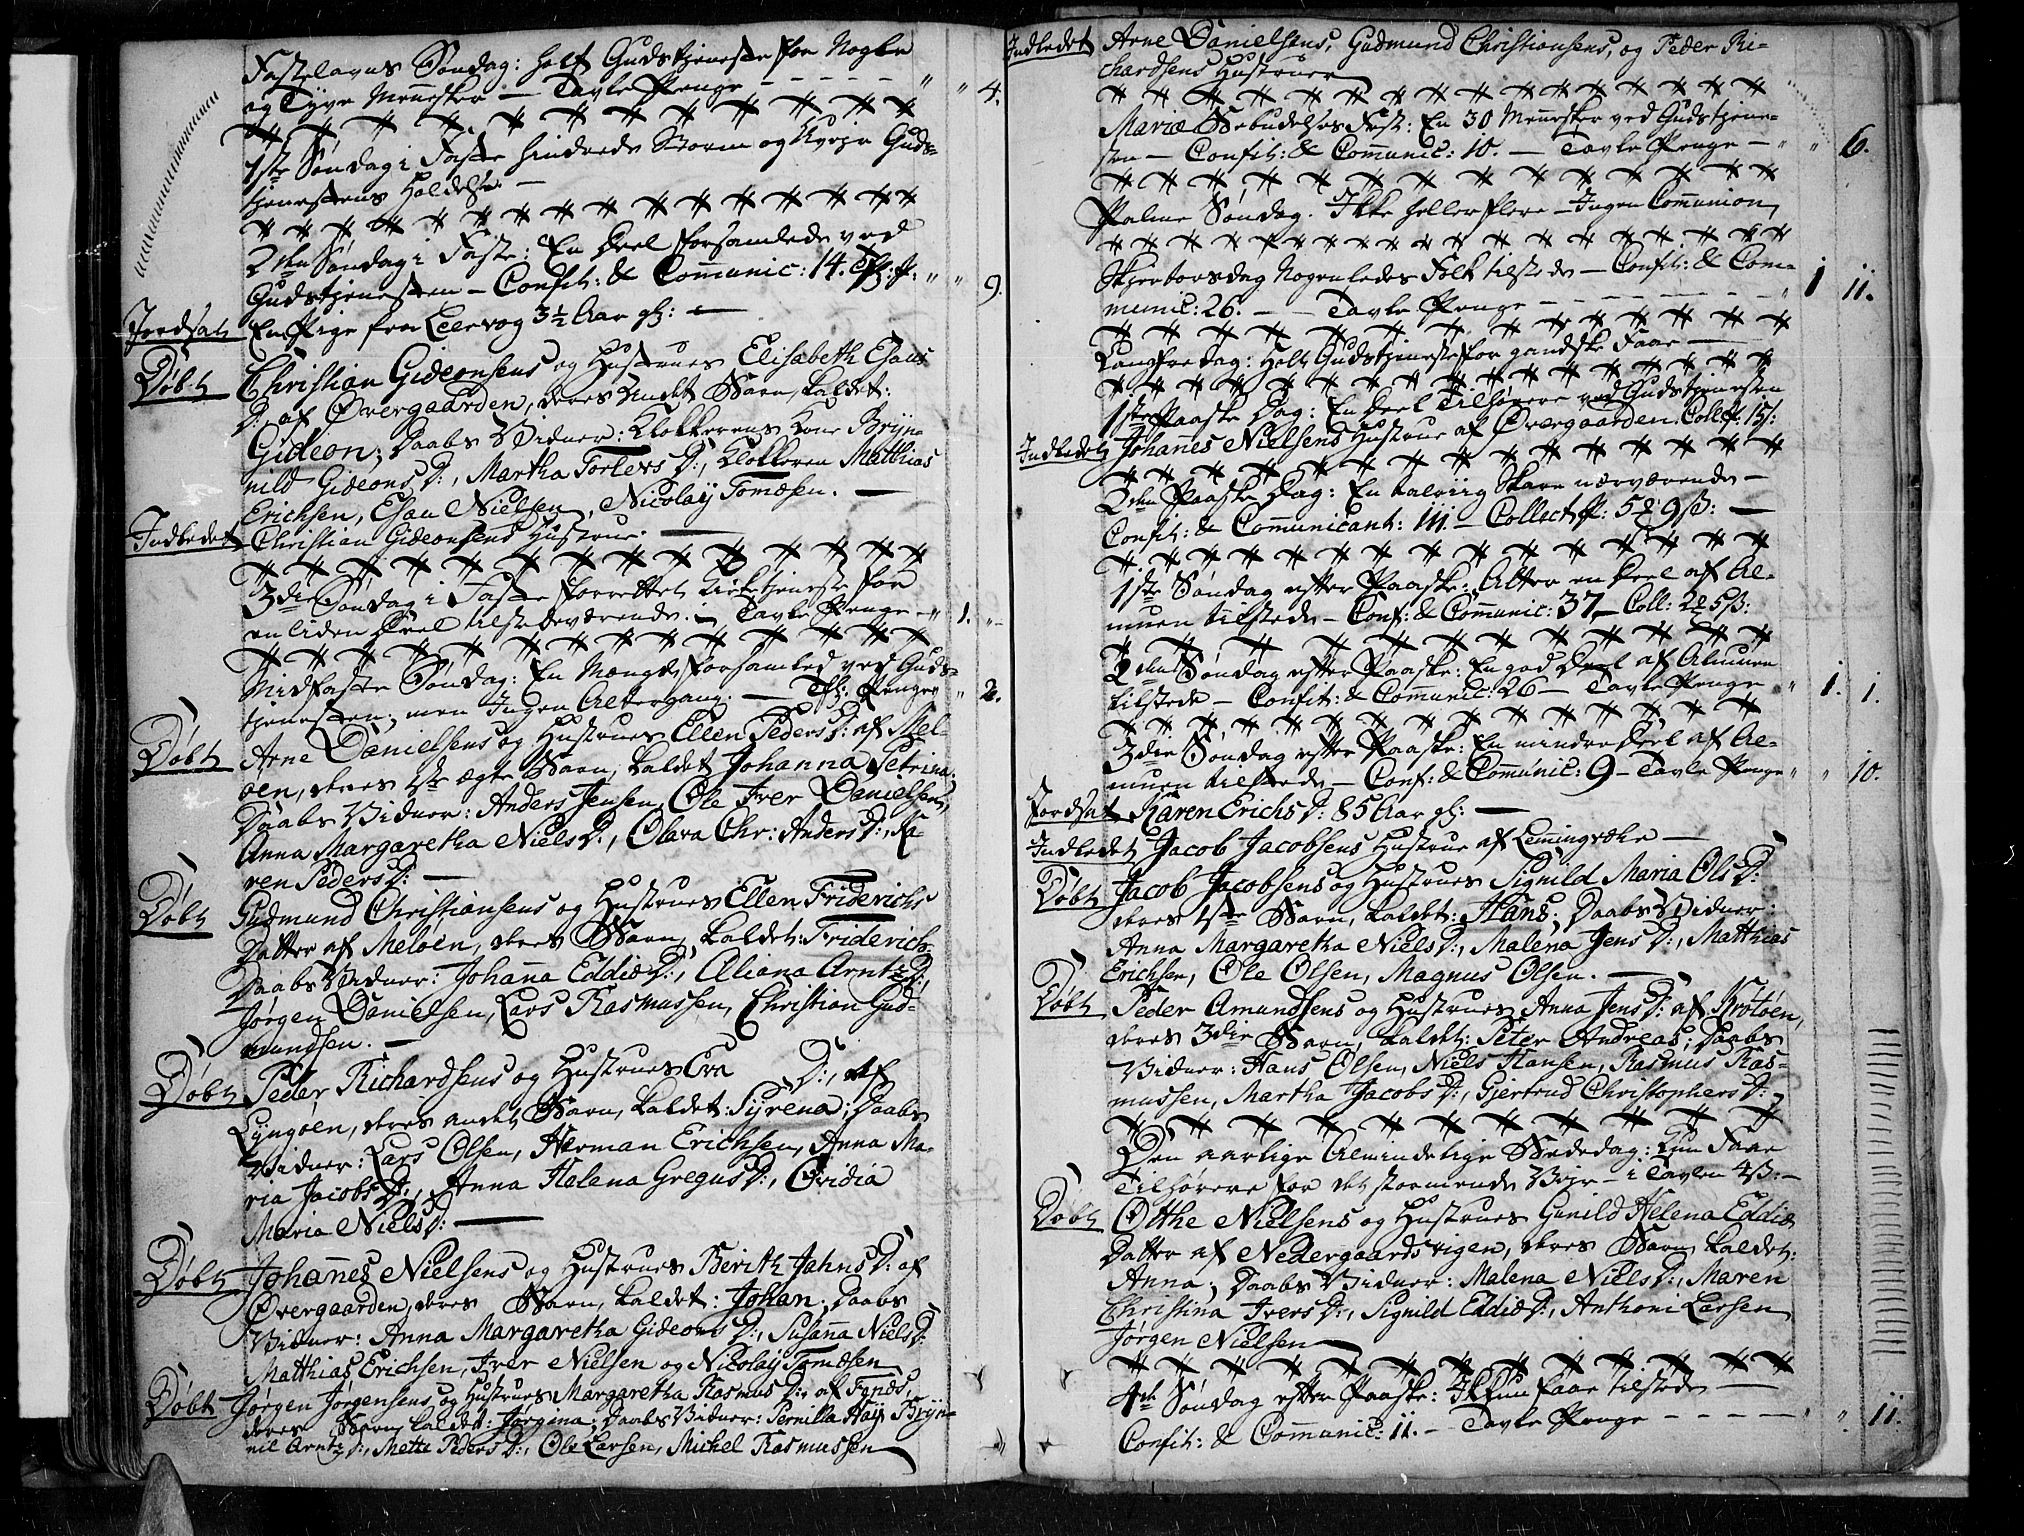 Fastelavns Søndag: holt Gudstjeneste for Nogle
og Tyve Mennesker — Tavle Penge - - - " " 4.
1ste Søndag i Faste hindrede Storm og Uvejr Guds-
tjenestens Holdelse. —
2den Søndag i Faste: En Deel forsamlede ved
Gudstjenesten — Confit: & Communic: 14. " " 9.
Jordsat En Pige fra Leervog 3½ Aar gl: —
Døbt Christian Gideonsens og Hustrues Elisabeth Esaus
D: af Øvergaarden, deres Andet Barn, kaldet:
Gideon; Daabs Vidner: Klokkerens Kone Bryn-
nild Gideons D:, Martha Torlevs D:, Klokkeren Matthias
Erichsen, Esau Nielsen, Nicolay Tomæsen. —
Indledet Christian Gideonsens Hustrue. —
3die Søndag i Faste forrettet Kirketjeneste for
en liden Deel tilstedeværende. — Tavle Penge - " 1. "
Midfaste Søndag: En Mængde forsamled ved Guds-
tjenesten; men Ingen Altergang. — Penger " 2.
Døbt Arne Danielsens og Hustrues Ellen Peders D: af Mel-
øen, deres 1ste ægte Barn, kaldet Johanna Petrina.
Daabs Vidner: Anders Jensen, Ole Iver Danielsen,
Anna Margaretha Niels D:, Olava Chr: Anders D:, Ka-
ren Peders D: —
Døbt Gudmund Christiansens og Hustrues Ellen Friderichs
Datter af Meløen, deres Barn, kaldet: Friderich.
Daabs Vidner: Johanna Eddiæ D:, Aliana Arntz D:,
Jørgen Danielsen, Lars Rasmussen, Christian Gud-
mundsen. —
Døbt Peder Richardsens og Hustrues Eva D:, af
Lyngøen, deres andet Barn, kaldet: Syrena; Daabs
Vidner: Lars Olsen, Herman Erichsen, Anna Ma-
ria Jacobs D:, Anna Halena Gregus D:, Ovidia
Maria Niels D: —
Døbt Johannes Nielsens og Hustrues Berith Jahns D: af
Øvergaarden, deres Barn, kaldet: Johan. Daabs
Vidner: Anna Margaretha Gideons D:, Susanna Niels D:
Matthias Erichsen, Iver Nielsen og Nicolay Tomæsen
Døbt Jørgen Jørgensens og Hustrues Margaretha Rasmus D:, af Fønes,
deres Barn, kaldet: Jørgina: Daabs Vidner: Pernilla Haij Bryn-
nil Arntz D:, Mette Peders D:, Ole Larsen, Michel Rasmussen
Indledet Arne Danielsens, Gudmund Christiansens, og Peder Ri-
chardsens Hustruer
Mariæ Bebudelses Fest: En 30 Mennesker ved Gudstjene-
sten — Confit: & Communic: 10. — Tavle Penge — " " 6.
Palme Søndag. Ikke heller flere — Ingen Communion
Skjertorsdag Nogenledes Folk tilstede — Confit: & Com-
munic: 26. — Tavle Penge - - - " 1 11.
Langfredag: Holt Gudstjeneste for gandske Faae —
1ste Paaske Dag: En Deel Tilhørere ved Gudstjenesten
Indledet Johannes Nielsens Hustrue af Øvergaarden.
2den Paaske Dag: En talriig Skare nærværende —
Confit: & Communicant: 111. — Collect
1ste Søndag efter Paaske: Atter en Deel af Al-
muen tilstede — Conf: & Communic: 37 — Coll:
2den Søndag efter Paaske: En god Deel af Almuen
tilstede — Confit: & Comunic: 26 — Tavle Penge " 1. 1.
3die Søndag efter Paaske: En mindre Deel af Al-
muen tilstede — Conf: & Communic: 9 — Tavle Penge " " 10.
Jordsat Karen Erichs D: 85 Aar gl: —
Indledet Jacob Jacobsens Hustrue af —
Døbt Jacob Jacobsens og Hustrues Signild Maria Ols D:
deres 1ste Barn, kaldet: Hans; Daabs Vidner:
Anna Margaretha Niels D:, Malena Jens D:, Matthias
Erichsen, Ole Olsen, Magnus Olsen. —
Døbt Peder Amundsens og Hustrues Anna Jens D: af Krotøen,
deres 3die Barn, kaldet: Peter Andreas; Daabs
Vidner: Hans Olsen, Niels Hansen, Rasmus Ras-
mussen, Martha Jacobs D:, Gjertrud Christophers D:
Den aarlige Almindelige Bededag: Kun Faae
Tilhørere for det stormende Vejr — i Tavlen 4ß: —
Døbt Olthe Nielsens og Hustrues Gunild Helena Eddiæ
Datter af Nedergaards, deres Barn, kaldet:
Anna; Daabs Vidner: Malena Niels D:, Maren
Christina Ivers D:, Signild Eddiæ D:, Anthoni Larsen
Jørgen Nielsen —
4de Søndag efter Paaske: Ikkun Faae tilstede —
Confit: & Communic: 11. — Tavle Penge - - - " " 11.